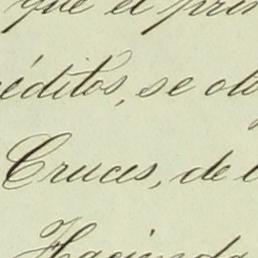 que el prin
éditos, se ob
Cruces, de l
Hacienda